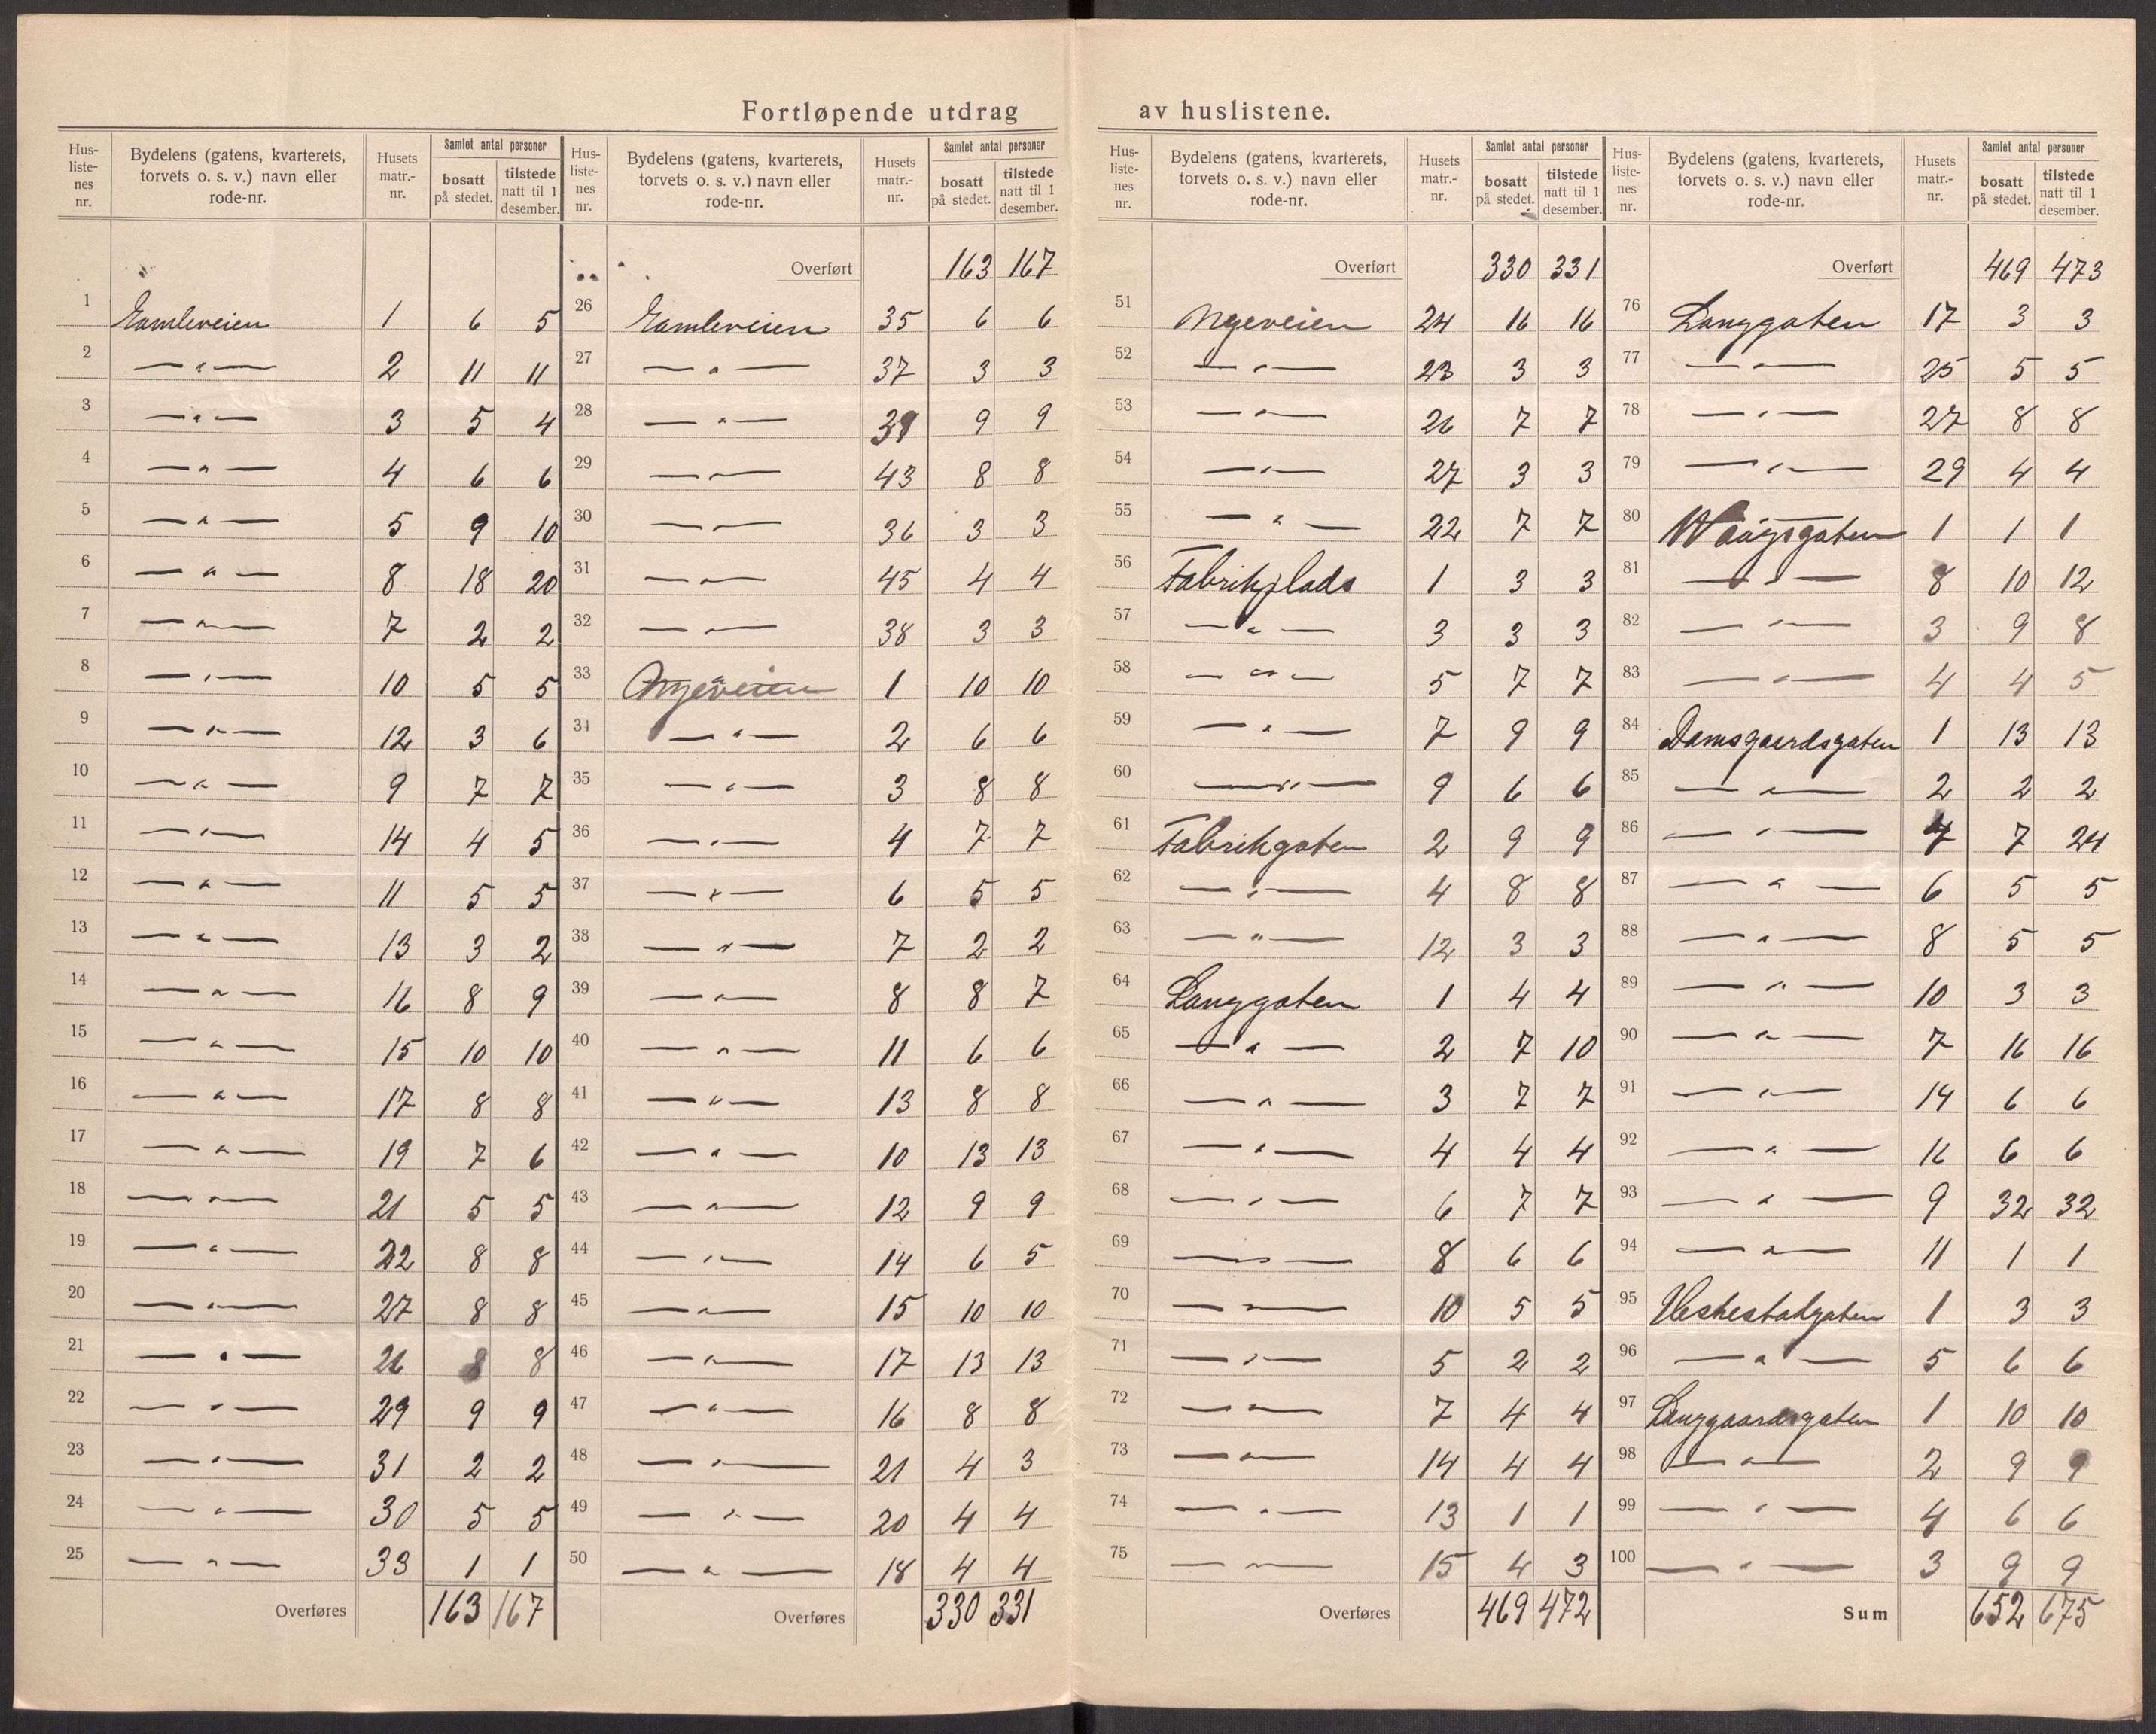 Fortløpende utdrag av huslistene.
Hus-liste-nes nr. | Bydelens (gatens, kvarterets, torvets o. s. v.) navn eller rode-nr. | Husets matr.-nr. | Samlet antal personer | bosatt på stedet. | tilstede natt til 1 desember.
1 Gamleveien 1 6 5
2 —„— 2 11 11
3 —„— 3 5 4
4 —„— 4 6 6
5 —„— 5 9 10
6 —„— 8 18 20
7 —„— 7 2 2
8 —„— 10 5 5
9 —„— 12 3 6
10 —„— 9 7 7
11 —„— 14 4 5
12 —„— 11 5 5
13 —„— 13 3 2
14 —„— 16 8 9
15 —„— 15 10 10
16 —„— 17 8 8
17 —„— 19 7 6
18 —„— 21 5 5
19 —„— 22 8 8
20 —„— 27 8 8
21 —„— 26 8 8
22 —„— 29 9 9
23 —„— 31 2 2
24 —„— 30 5 5
25 —„— 33 1 1
Overføres 163 167
Hus-liste-nes nr. | Bydelens (gatens, kvarterets, torvets o. s. v.) navn eller rode-nr. | Husets matr.-nr. | Samlet antal personer | bosatt på stedet. | tilstede natt til 1 desember.
Overført 163 167
26 Gamleveien 35 6 6
27 —„— 37 3 3
28 —„— 39 9 9
29 —„— 43 8 8
30 —„— 36 3 3
31 —„— 45 4 4
32 —„— 38 3 3
33 Nyeveien 1 10 10
34 —„— 2 6 6
35 —„— 3 8 8
36 —„— 4 7 7
37 —„— 6 5 5
38 —„— 7 2 2
39 —„— 8 8 7
40 —„— 11 6 6
41 —„— 13 8 8
42 —„— 10 13 13
43 —„— 12 9 9
44 —„— 14 6 5
45 —„— 15 10 10
46 —„— 17 13 13
47 —„— 16 8 8
48 —„— 21 4 3
49 —„— 20 4 4
50 —„— 18 4 4
Overføres 330 331
Hus-liste-nes nr. | Bydelens (gatens, kvarterets, torvets o. s. v.) navn eller rode-nr. | Husets matr.-nr. | Samlet antal personer | bosatt på stedet. | tilstede natt til 1 desember.
Overført 330 331
51 Nyeveien 24 16 16
52 —„— 23 3 3
53 —„— 26 7 7
54 —„— 27 3 3
55 —„— 22 7 7
56 Fabrikplads 1 3 3
57 —„— 3 3 3
58 —„— 5 7 7
59 —„— 7 9 9
60 —„— 9 6 6
61 Fabrikgaten 2 9 9
62 —„— 4 8 8
63 —„— 12 3 3
64 Langgaten 1 4 4
65 —„— 2 7 10
66 —„— 3 7 7
67 —„— 4 4 4
68 —„— 6 7 7
69 —„— 8 6 6
70 —„— 10 5 5
71 —„— 5 2 2
72 —„— 7 4 4
73 —„— 14 4 4
74 —„— 13 1 1
75 —„— 15 4 3
Overføres 469 472
Hus-liste-nes nr. | Bydelens (gatens, kvarterets, torvets o. s. v.) navn eller rode-nr. | Husets matr.-nr. | Samlet antal personer | bosatt på stedet. | tilstede natt til 1 desember.
Overført 469 473
76 Langgaten 17 3 3
77 —„— 25 5 5
78 —„— 27 8 8
79 —„— 29 4 4
80 Waagsgaten 1 1 1
81 —„— 8 10 12
82 —„— 3 9 8
83 —„— 4 4 5
84 Damsgaardsgaten 1 13 13
85 —„— 2 2 2
86 —„— 4 7 24
87 —„— 6 5 5
88 —„— 8 5 5
89 —„— 10 3 3
90 —„— 7 16 16
91 —„— 14 6 6
92 —„— 16 6 6
93 —„— 9 32 32
94 —„— 11 1 1
95 1 3 3
96 —„— 5 6 6
97 Langgaardsgaten 1 10 10
98 —„— 2 9 9
99 —„— 4 6 6
100 —„— 3 9 9
Sum 652 675